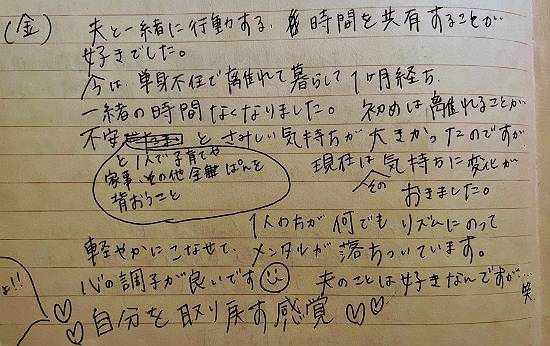 (金)
夫と一緒に行動する、時間を共有することが
好きでした。
今は、単身不住で離れて暮らして1ヶ月経ち
一緒の時間なくなりました。初めは離れることが
不安 とさみしい気持ちが大きかったのですが
と1人で子育てや
家事、その他全般ぱんを
背おうこと
現在は気持ちに変化が
その
おきました。
1人の方が何でもリズムにのって
軽やかにこなせて、メンタルが落ちついています。
心の調子が良いです 夫のことは好きなんですが…笑
よ!!
自分を取り戻す感覚